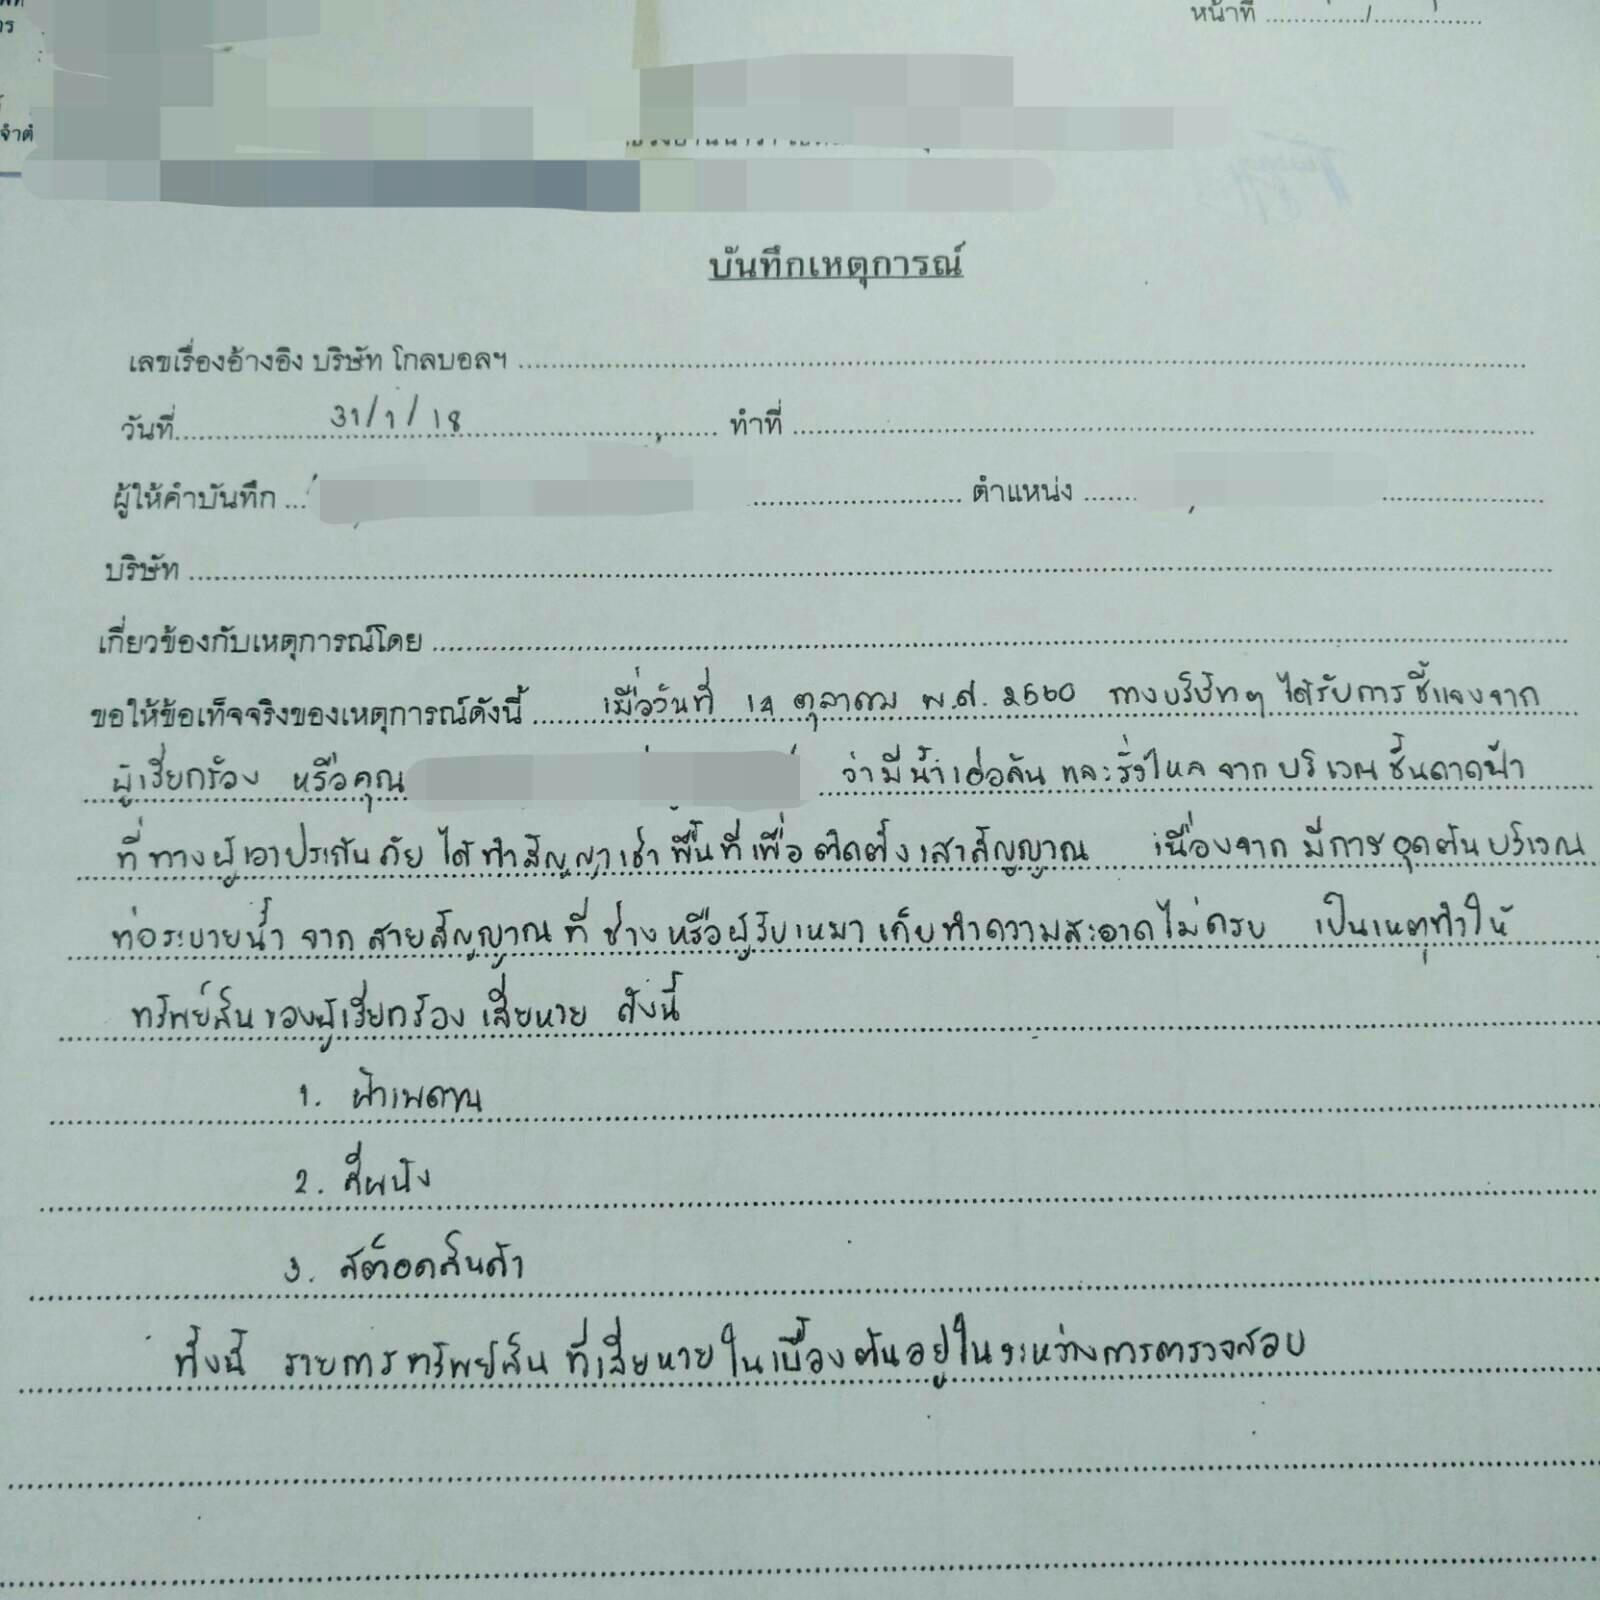 หน้าที่ ............/............
การ
จำกั
บันทึกเหตุการณ์
เลขเรื่องอ้างอิง บริษัท โกลบอลฯ
วันที่ 31/1/18 ทำที่
ผู้ให้คำบันทึก ตำแหน่ง
บริษัท
เกี่ยวข้องกับเหตุการณ์โดย
ขอให้ข้อเท็จจริงของเหตุการณ์ดังนี้ เมื่อวันที่ 14 ตุลาคม พ.ศ. 2560 ทางบริษัทฯ ได้รับการชี้แจงจาก
ผู้เรียกร้อง หรือคุณ ว่ามีน้ำเอ่อล้น และรั่วไหล จากบริเวณชั้นดาดฟ้า
ที่ ทางผู้เอาประกันภัย ได้ทำสัญญาเช่าพื้นที่เพื่อติดตั้งเสาสัญญาณ เนื่องจาก มีการอุดตันบริเวณ
ท่อระบายน้ำ จาก สายสัญญาณ ที่ ช่างหรือผู้รับเหมาเก็บทำความสะอาดไม่ครบ เป็นเหตุทำให้
ทรัพย์สินของผู้เรียกร้อง เสียหาย ดังนี้
1. ฝ้าเพดาน
2. สีผนัง
3. สต็อคสินค้า
ทั้งนี้ รายการทรัพย์สิน ที่เสียหายในเบื้องต้นอยู่ในระหว่างการตรวจสอบ